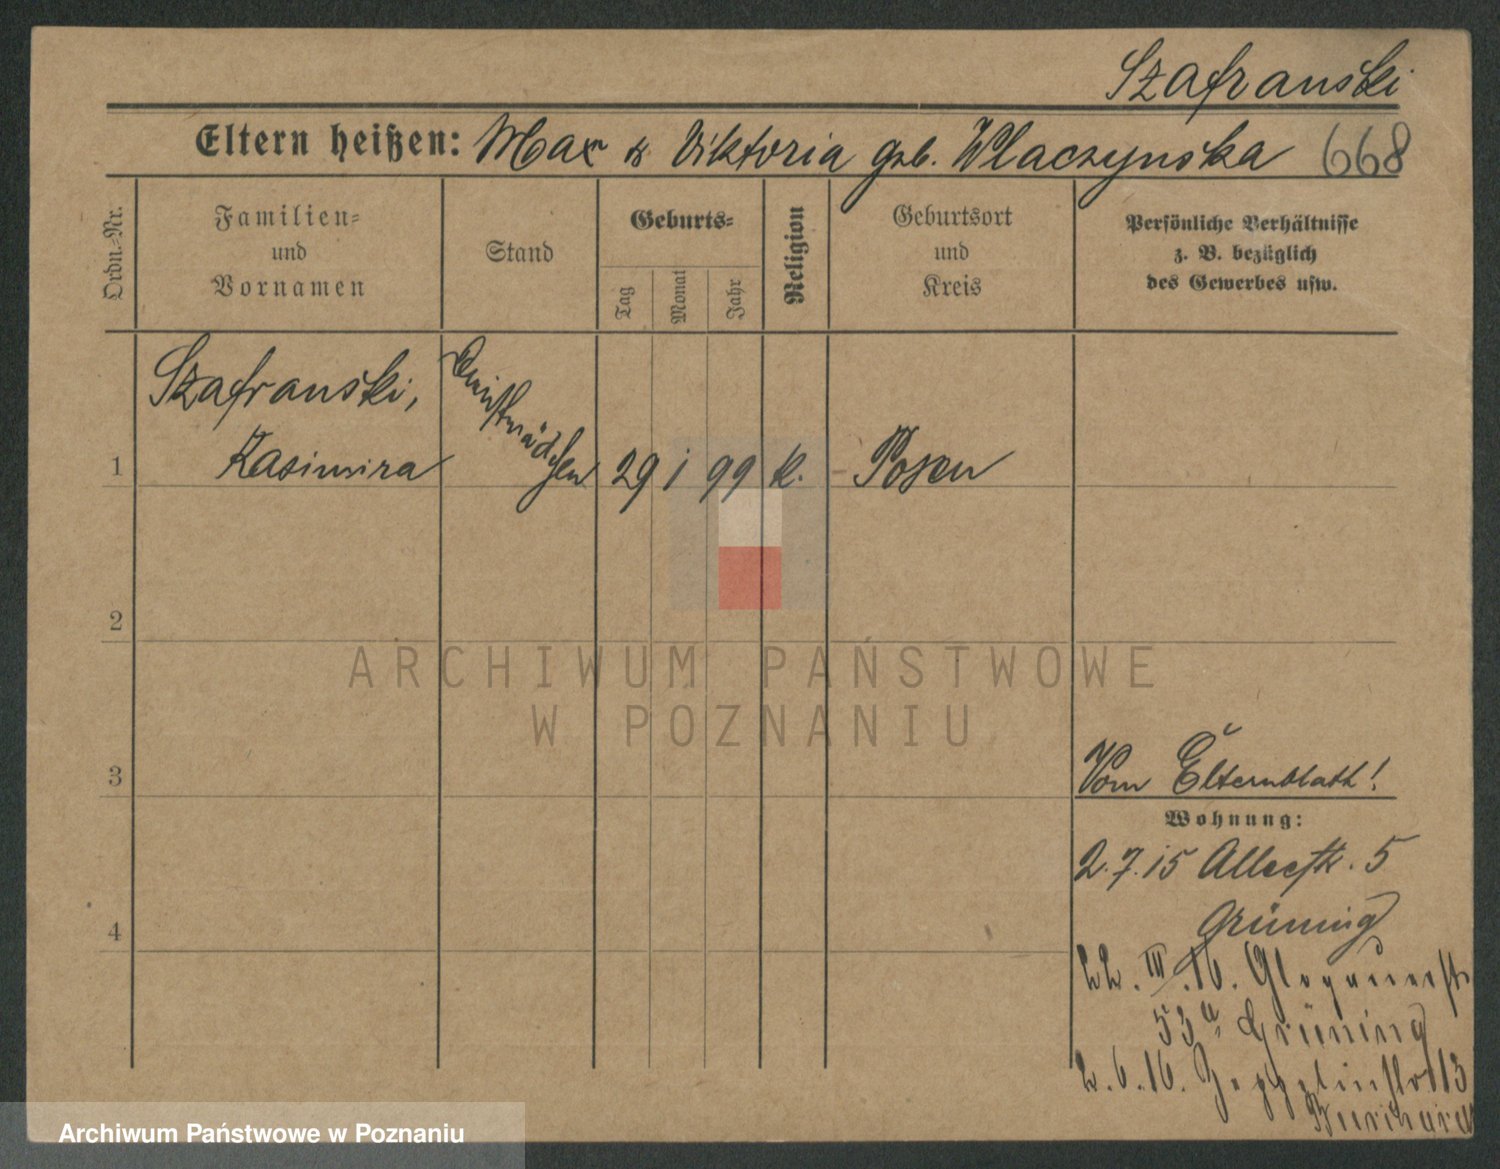 Szafranski
Eltern heißen: Max & Viktoria geb. Wlaczynska 668
Ordn.-Nr.
Familien-
und
Vornamen
Stand
Geburts-
Tag
Monat
Jahr
Religion
Geburtsort
und
Kreis
Persönliche Verhältnisse
z. B. bezüglich
des Gewerbes usw.
1
Szafranski,
Kasimira
Dienstmädchen
29 1 99 k. Posen
2
ARCHIWUM PAŃSTWOWE
W POZNANIU
3
Vom Elternblatt!
Wohnung:
2.7.15 Alleestr. 5
Grüning
4
22.III.16. Glogauerstr
53a Grüning
2.6.16. Zeppelinstr 13
Archiwum Państwowe w Poznaniu